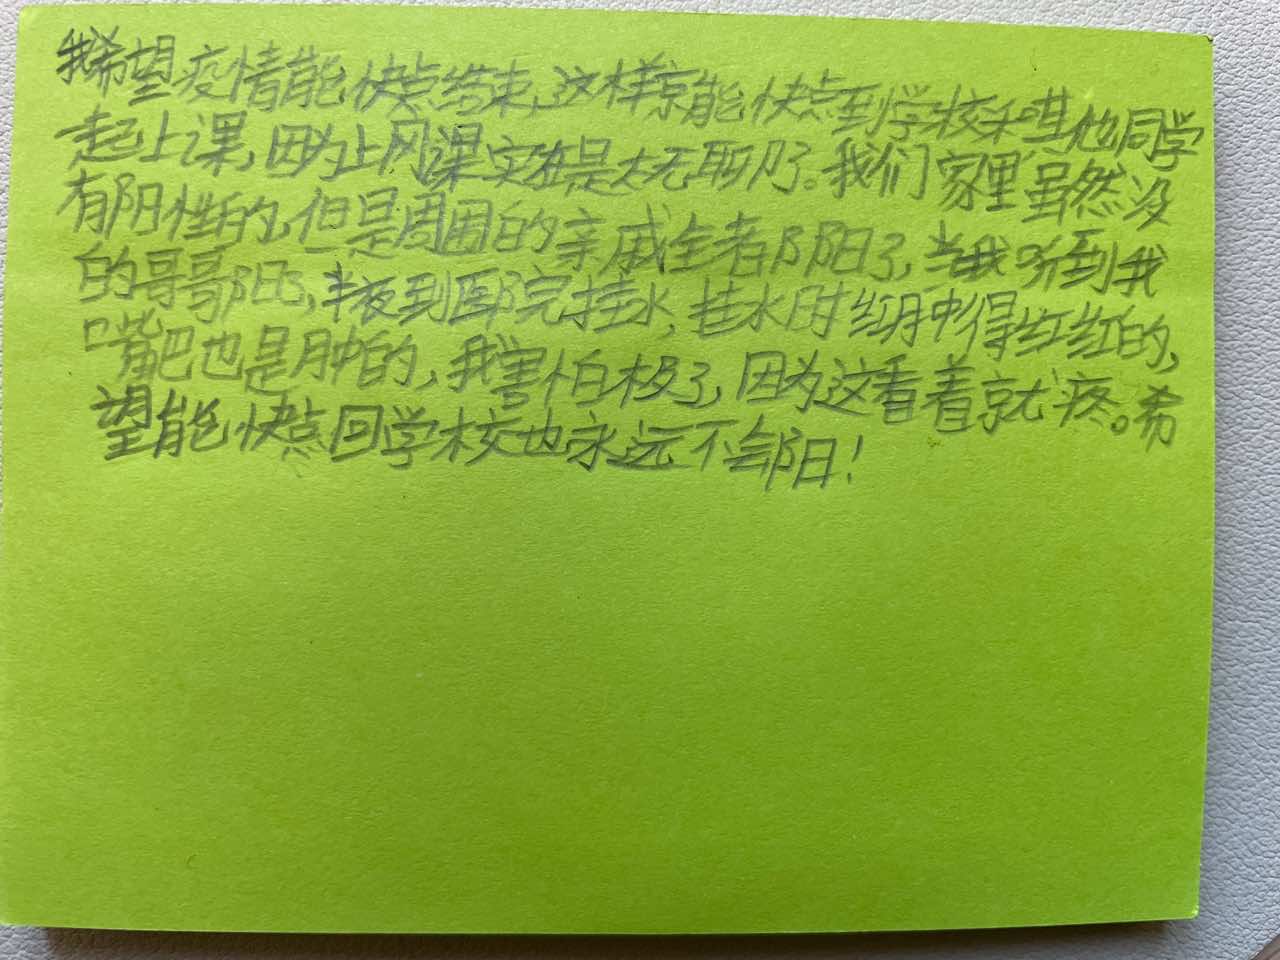 我希望疫情能快点结束,这样就能快点到学校和其他同学
起上课,因为上网课实在是太无聊了。我们家里虽然没
有阳性的,但是周围的亲戚全都阳了,当我听到我
的哥哥阳了,半夜到医院挂水,挂水时红肿得红红的,
嘴巴也是肿的,我害怕极了,因为这看着就疼。希
望能快点回学校也永远不会阳!